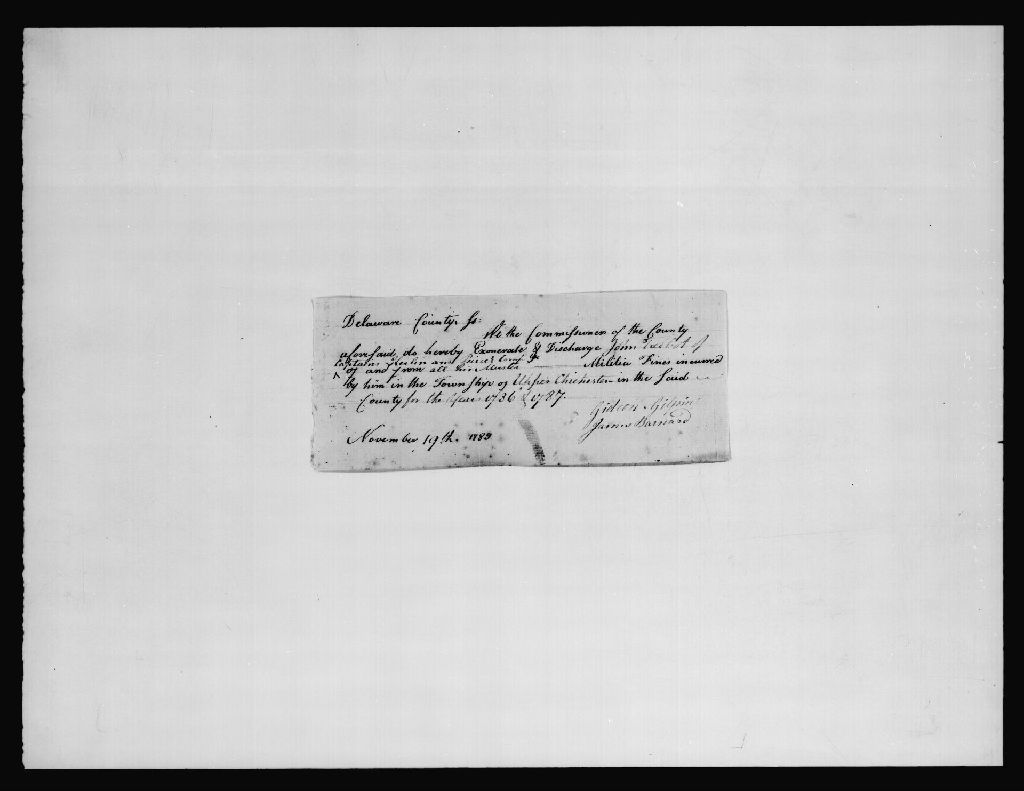 Delaware County Ss
We the Commissioner of the County
aforesaid, do hereby Exonerate & Discharge John
Captain and
of and from all his Muster Militia Fines incurred
by him in the Township of Upper Chichester in the said
County for the Years 1786 & 1787
Gideon Gilpin
James Barnard
November 19th. 1789